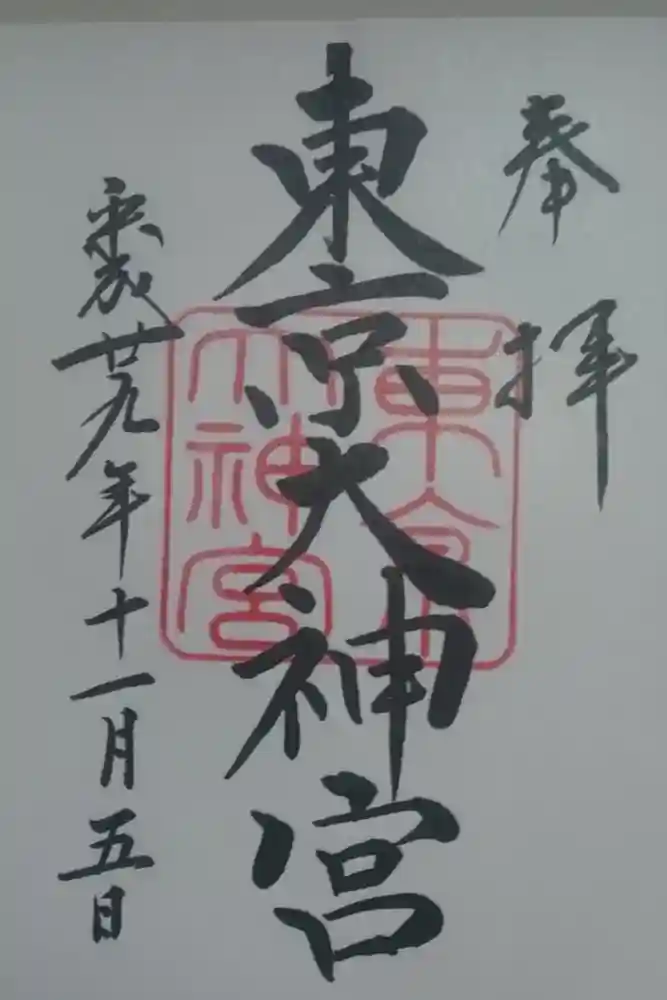 奉拝
東京大神宮
東京
大神宮
平成廿九年十一月五日